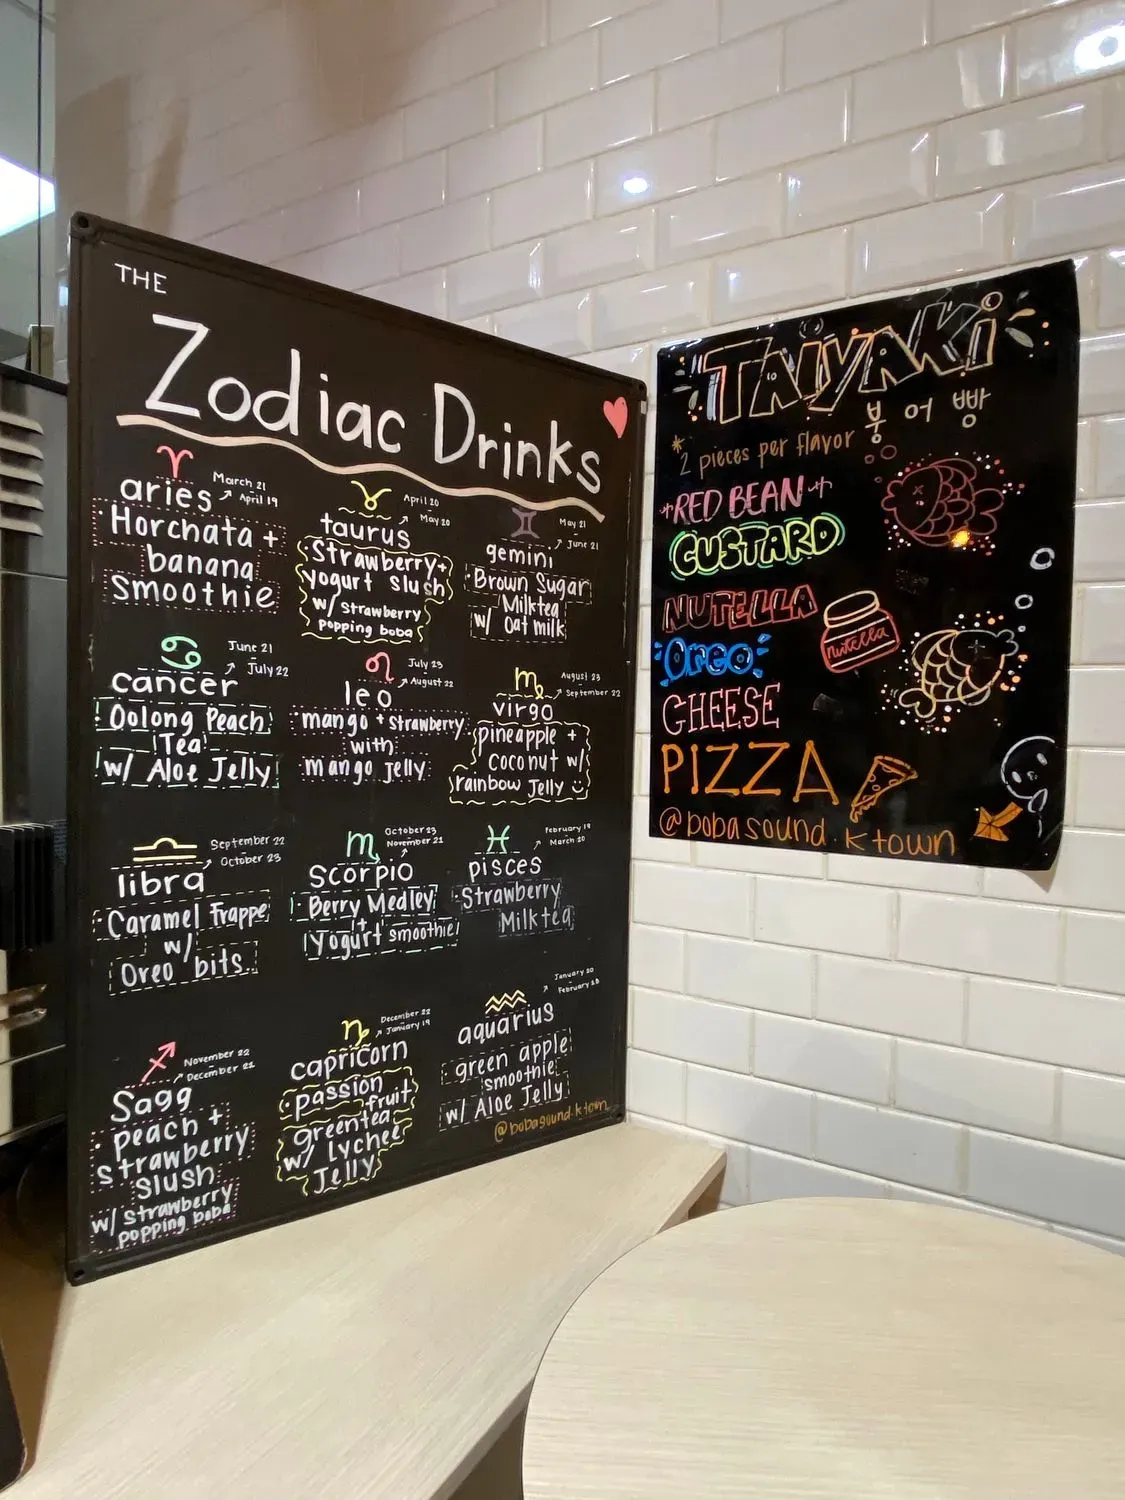 THE
Zodiac Drinks
aries
March 21
April 19
Horchata +
banana
Smoothie
taurus
April 20
May 20
Strawberry +
yogurt slush
w/ strawberry
popping boba
gemini
May 21
June 21
Brown Sugar
Milktea
w/ oat milk
cancer
June 21
July 22
Oolong Peach
Tea
w/ Aloe Jelly
leo
July 23
August 22
mango + strawberry
with
mango jelly
virgo
August 23
September 22
pineapple +
coconut w/
rainbow Jelly
libra
September 22
October 23
Caramel Frappe
w/
Oreo bits
scorpio
October 23
November 21
Berry Medley
+
Yogurt smoothie
pisces
February 19
March 20
Strawberry
Milktea
Sagg
November 22
December 21
peach +
strawberry
slush
w/ strawberry
popping boba
capricorn
December 22
January 19
passion
fruit
greentea
w/ lychee
Jelly
aquarius
January 20
February 18
green apple
smoothie
w/ Aloe Jelly
@bobasound.ktown
TAIYAKI
붕어빵
*2 pieces per flavor
RED BEAN
CUSTARD
NUTELLA
nutella
Oreo
CHEESE
PIZZA
@bobasound.ktown